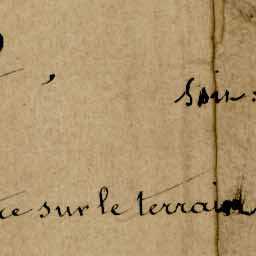 soir :
re sur le terrain